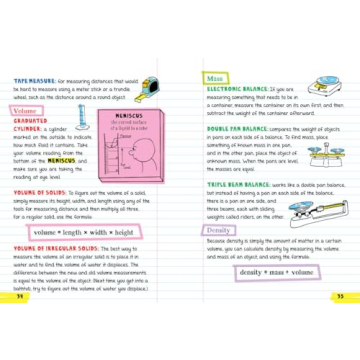 TAPE MEASURE: For measuring distances that would
be hard to measure using a meter stick or a trundle
wheel, such as the distance around a round object.
Volume
GRADUATED
CYLINDER: a cylinder
marked on the outside to indicate
how much fluid it contains. Take
your volume reading from the
bottom of the MENISCUS and
make sure you are taking the
reading at eye level.
MENISCUS
the curved surface
of a liquid in a tube
VOLUME OF SOLIDS: To figure out the volume of a solid,
simply measure its height, width, and length using any of the
tools for measuring distance and then multiply all three.
For a regular solid, use the formula:
volume = length × width × height
VOLUME OF IRREGULAR SOLIDS: The best way to
measure the volume of an irregular solid is to place it in
water and to find the volume of water it displaces. The
difference between the new and old volume measurements
is equal to the volume of the object. (Next time you get into a
bathtub, try to figure out the volume of water you displace.)
34
Mass
ELECTRONIC BALANCE: If you are
measuring something that needs to be in
a container, measure the container on its own first, and then
subtract the weight of the container afterward.
DOUBLE PAN BALANCE: compares the weight of objects
in pans on each side of a balance. To find mass, place
something of known mass in one pan,
and in the other pan, place the object of
unknown mass. When the pans are level,
the masses are equal.
TRIPLE BEAM BALANCE: works like a double pan balance,
but instead of having a pan on each side of the balance,
there is a pan on one side, and
three beams, each with sliding
weights called riders, on the other.
Density
Because density is simply the amount of matter in a certain
volume, you can calculate density by measuring the volume
and mass of an object and using the formula:
density = mass ÷ volume
35